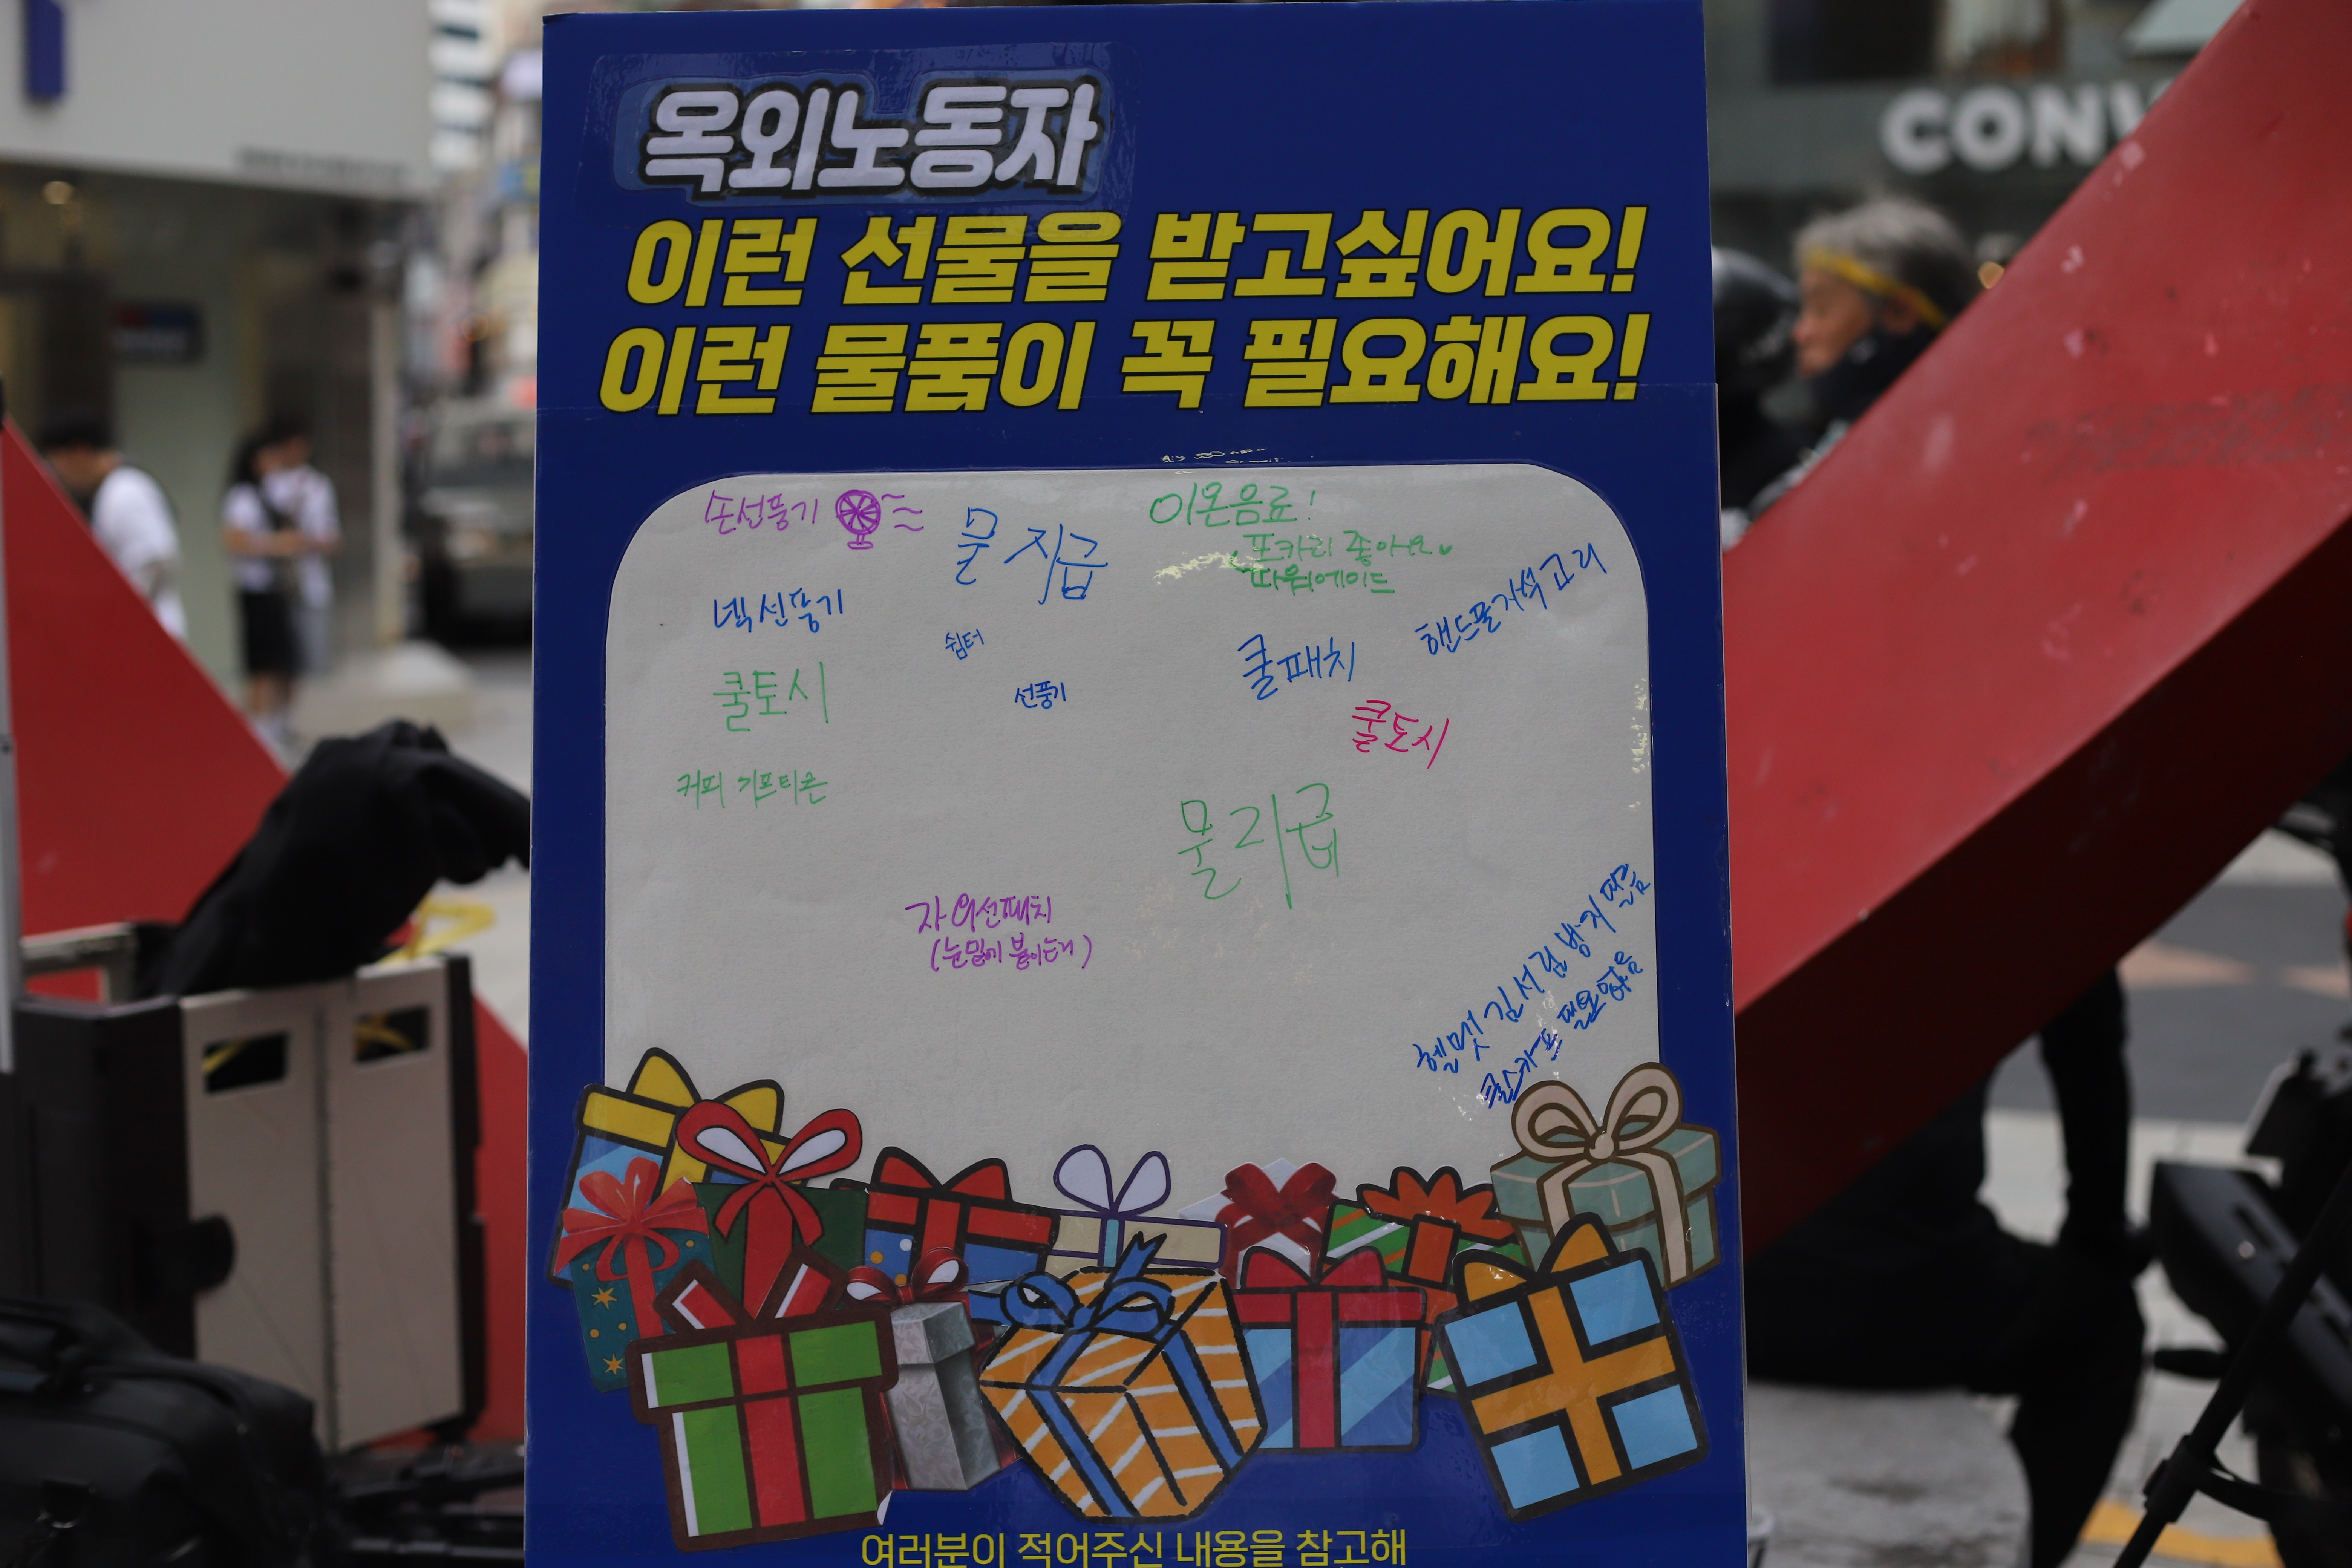 CONV
옥외노동자
이런 선물을 받고싶어요!
이런 물품이 꼭 필요해요!
손선풍기
물 지급
이온음료!
포카리 좋아요
파워에이드
넥선풍기
쉼터
쿨패치
핸드폰거석고리
쿨토시
선풍기
쿨토시
커피 기프티콘
물 지급
자외선패치
(눈밑에 붙이는거)
헬멧 김서림 방지 땀금
쿨스카프 필요함을
여러분이 적어주신 내용을 참고해